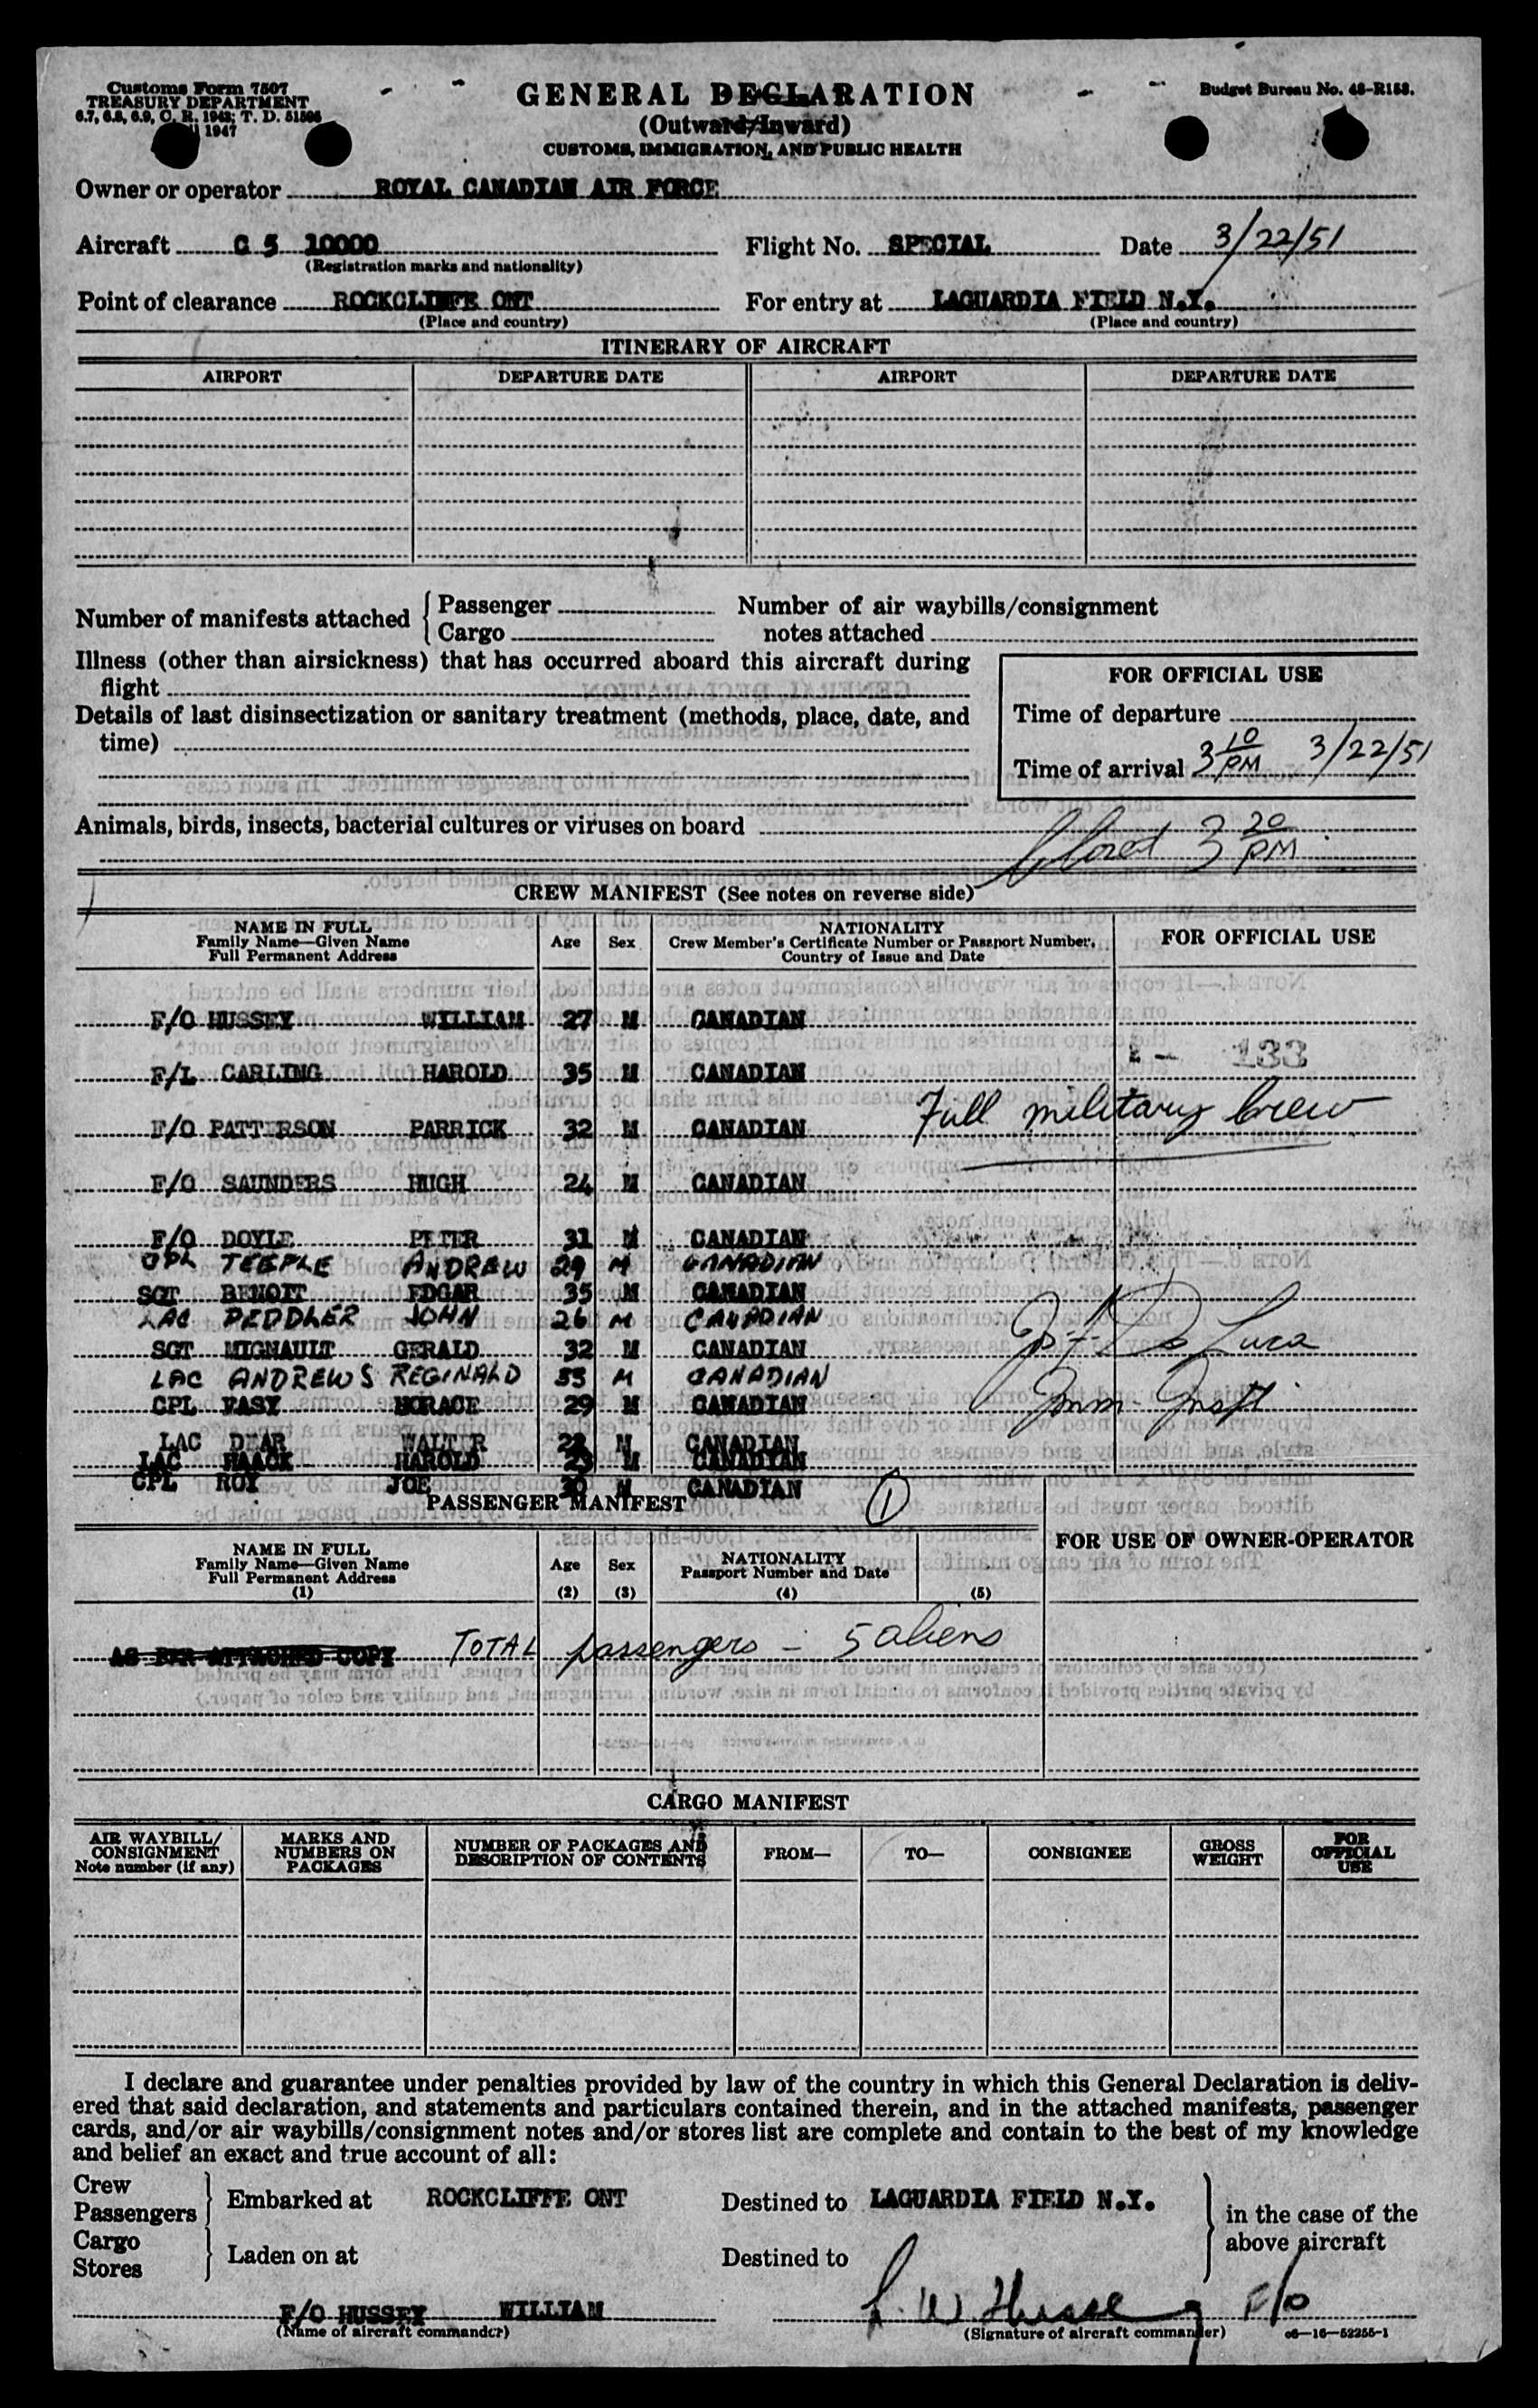 Customs Form 7507
TREASURY DEPARTMENT
6.7, 6.8, 6.9, C. R. 1943; T. D. 51506
1947
GENERAL DECLARATION
(Outward/Inward)
CUSTOMS, IMMIGRATION, AND PUBLIC HEALTH
Budget Bureau No. 48-R153.
Owner or operator ROYAL CANADIAN AIR FORCE
Aircraft C 5 10000 Flight No. SPECIAL Date 3/22/51
(Registration marks and nationality)
Point of clearance ROCKCLIFFE ONT For entry at LAGUARDIA FIELD N.Y.
(Place and country) (Place and country)
ITINERARY OF AIRCRAFT
AIRPORT DEPARTURE DATE AIRPORT DEPARTURE DATE
Number of manifests attached { Passenger Number of air waybills/consignment
Cargo notes attached
Illness (other than airsickness) that has occurred aboard this aircraft during
flight
FOR OFFICIAL USE
Details of last disinsectization or sanitary treatment (methods, place, date, and
time)
Time of departure
Time of arrival 3 10 PM 3/22/51
Animals, birds, insects, bacterial cultures or viruses on board
3 20 PM
CREW MANIFEST (See notes on reverse side)
NAME IN FULL
Family Name—Given Name
Full Permanent Address
Age Sex
NATIONALITY
Crew Member's Certificate Number or Passport Number,
Country of Issue and Date
FOR OFFICIAL USE
F/O HUSSEY WILLIAM 27 M CANADIAN
133
F/L CARLING HAROLD 35 M CANADIAN
Full military crew
F/O PATTERSON PARRICK 32 M CANADIAN
F/O SAUNDERS HUGH 24 M CANADIAN
F/O DOYLE PETER 31 M CANADIAN
CPL TEEPLE ANDREW 29 M CANADIAN
SGT BENOIT EDGAR 35 M CANADIAN
LAC PEDDLER JOHN 26 M CANADIAN
Jos F De Luca
SGT MIGNAULT GERALD 32 M CANADIAN
LAC ANDREWS REGINALD 33 M CANADIAN
Imm. Inspt.
CPL EASY HORACE 29 M CANADIAN
LAC DEAR WALTER M CANADIAN
LAC HAACK HAROLD 23 M CANADIAN
CPL ROY JOE 30 M CANADIAN
PASSENGER MANIFEST 1
NAME IN FULL
Family Name—Given Name
Full Permanent Address
(1)
Age
(2)
Sex
(3)
NATIONALITY
Passport Number and Date
(4) (5)
FOR USE OF OWNER-OPERATOR
AS PER ATTACHED COPY TOTAL passengers - 5 aliens
CARGO MANIFEST
AIR WAYBILL/
CONSIGNMENT
Note number (if any)
MARKS AND
NUMBERS ON
PACKAGES
NUMBER OF PACKAGES AND
DESCRIPTION OF CONTENTS
FROM—
TO—
CONSIGNEE
GROSS
WEIGHT
FOR
OFFICIAL
USE
I declare and guarantee under penalties provided by law of the country in which this General Declaration is deliv-
ered that said declaration, and statements and particulars contained therein, and in the attached manifests, passenger
cards, and/or air waybills/consignment notes and/or stores list are complete and contain to the best of my knowledge
and belief an exact and true account of all:
Crew
Passengers } Embarked at ROCKCLIFFE ONT Destined to LAGUARDIA FIELD N.Y.
Cargo
Stores } Laden on at Destined to
in the case of the
above aircraft
F/O HUSSEY WILLIAM
(Name of aircraft commander)
L. W. Hussey F/O
(Signature of aircraft commander)
16—52255-1